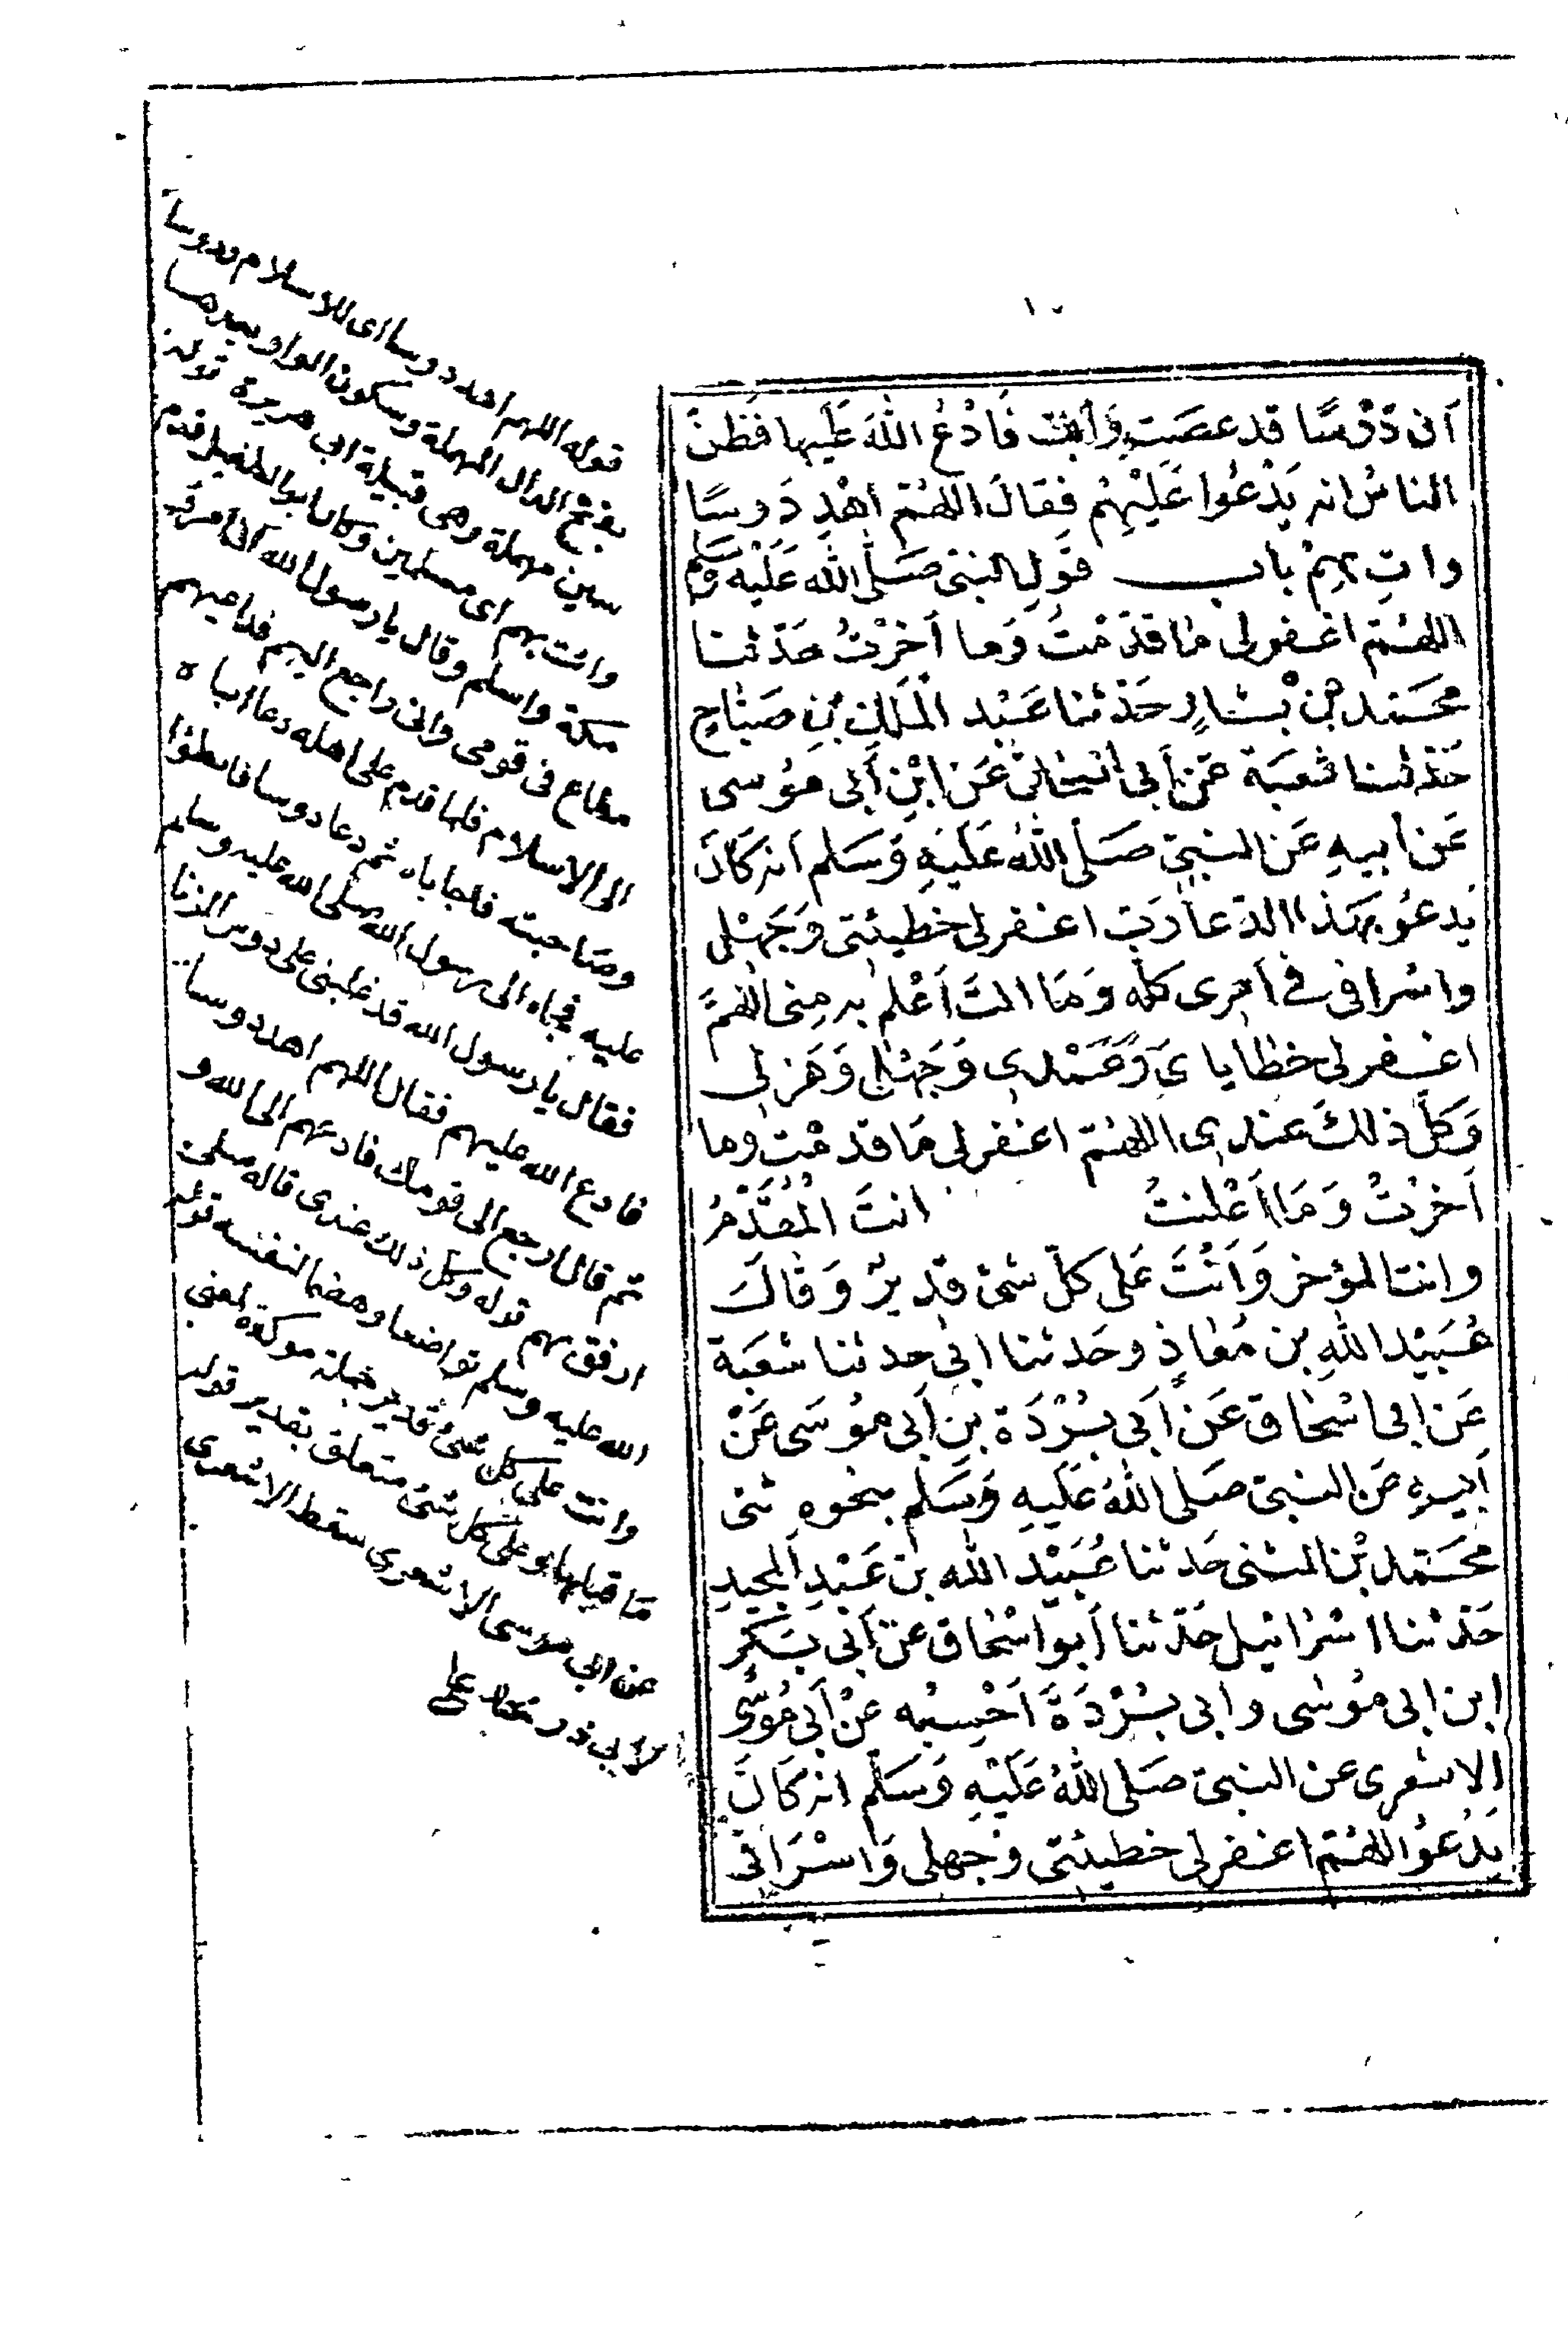 ١٠
اَن دَوْسًا قد عصَت وَاَبَت فَادْعُ اللهَ عَلَيها فظنَّ
الناسُ انه يَدْعُوا عَلَيْهِمْ فقالَ اللهُمّ اهْدِ دَوسًا
وا تِ بِهِمْ باب قَولِ النبى صَلَّى الله عَلَيْه وَسلم
اللهُمّ اغفرلى مَا قدَّمْتُ وَما اَخرْتُ حَدّثنا
محَمّد بْن بشارٍ حَدّثنا عَبْد الْمَلِك بْنِ صَبّاحٍ
حَدّثنا شعبَة عَن اَبى اسحَاق عَن ابْنِ أَبى مؤسى
عَن اَبيهِ عَن النبىّ صَلى اللهُ عَلَيهِ وَسَلم اَنه كَانَ
يَدعُو بهَذا الدّعا رَبّ اغفرلى خطيئتى وَجَهْلى
واسْرافى فى اَمرى كلّه وَمَا انتَ اَعْلم به مِنى اللهُمّ
اغفرلى خطايا ىَ وَعَمْدى وَجَهْلى وَهَزلى
وَكلّ ذلكَ عندى اللهُمّ اغفرلى مَا قدمْت وما
اَخرْتُ وَمَا اَعْلنتُ انتَ الْمُقَدّمُ
وانت المؤخر وَاَنْتَ عَلى كلّ شئ قديرٌ وَقالَ
عُبَيْد اللهِ بن مُعاذٍ وحَدثنا ابى حدثنا شعَبة
عَن ابى اسْحَاق عَن اَبى بُرْدَة بنِ اَبى مؤسَى عَنْ
اَبيهِ عَن النبىّ صَلى اللهُ عَلَيهِ وَسَلم بنحوه ثنى
محَمّد بْن المثنى حَدثنا عُبَيْد الله بن عَبْدِ المجِيدِ
حَدّثنا اسْرائيل حَدّثنا اَبو اسْحَاق عَنْ اَبى بَكر
ابن ابى مؤسَى وابى بُرْدَةَ اَحْسِبُه عَنْ اَبى مُوسَى
الاشعرى عن النبىّ صَلى اللهُ عَلَيْهِ وَسَلّم انه كَانَ
يَدْعُو اللهُمّ اغفرلى خطيئتى وَجهلى وَاسْرَافى
قوله اللهم اهد دوسا اى للاسلام ودوسا
بفتح الدال المهملة وسكون الواو بعدها
سين مهملة وهى قبيلة ابى هريرة قوله
وائت بهم اى مسلمين وكان ابو الطفيل قدم
مكة واسلم وقال يا رسول الله انى امرؤ
مطاع فى قومى وانى راجع اليهم فداعيهم
الى الاسلام فلما قدم على اهله دعا اباه
وصاحبته فاجاباه ثم دعا دوسا فابطئوا
عليه فجاء الى رسول الله صلى الله عليه وسلم
فقال يا رسول الله قد غلبنى على دوس الزنا
فادع الله عليهم فقال اللهم اهد دوسا
ثم قال ارجع الى قومك فادعهم الى الله و
ارفق بهم قوله وكل ذلك عندى قاله صلى
الله عليه وسلم تواضعا وهضما لنفسه قوله
وانت على كل شئ قدير جملة موكدة لمعنى
ما قبلها وعلى كل شئ متعلق بقدير قوله
عن ابى موسى الاشعرى سقط الاشعرى
لابى ذر على